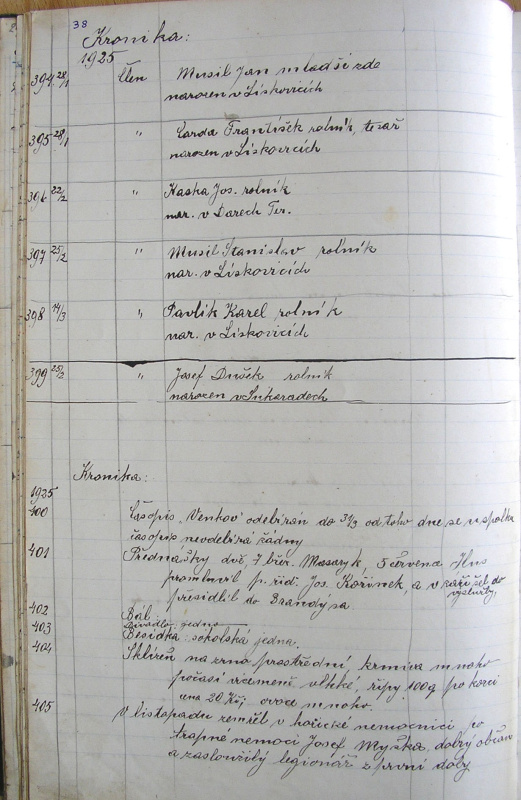 38
Kronika:
1925
394 28/1 Člen Musil Jan mladší zde
narozen v Liskovicích
395 28/1 " Čarda František rolník, tesař
narozen v Liskovicích
396 22/2 " Kaska Jos. rolník
nar. v Darech Ter.
397 25/2 " Musil Stanislav rolník
nar. v Liskovicích
398 14/3 " Pavlík Karel rolník
nar. v Liskovicích
399 25/2 " Josef Dušek rolník
narozen v Sukoradech
Kronika:
1925
400 Časopis "Venkov" odebírán do 31/3 od toho dne se v spolku
časopis neodebírá žádný
401 Přednášky dvě, 7 břez. Masaryk, 5 července Hus
promluvil p. říd. Jos. Kořínek, a v září šel do
přesídlil do Brandýsa výslužby,
402 Bál:
403 Divadlo jedno
Besídka: sokolská jedna.
404 Sklizeň na zrno prostřední, krmiva mnoho
počasí víceméně vlhké, řípy 100 q po korci
cena 20 Kč; ovoce mnoho.
405 V listopadu zemřel v hořické nemocnici po
trapné nemoci Josef Myška, dobrý občan
a zasloužilý legionář z první doby